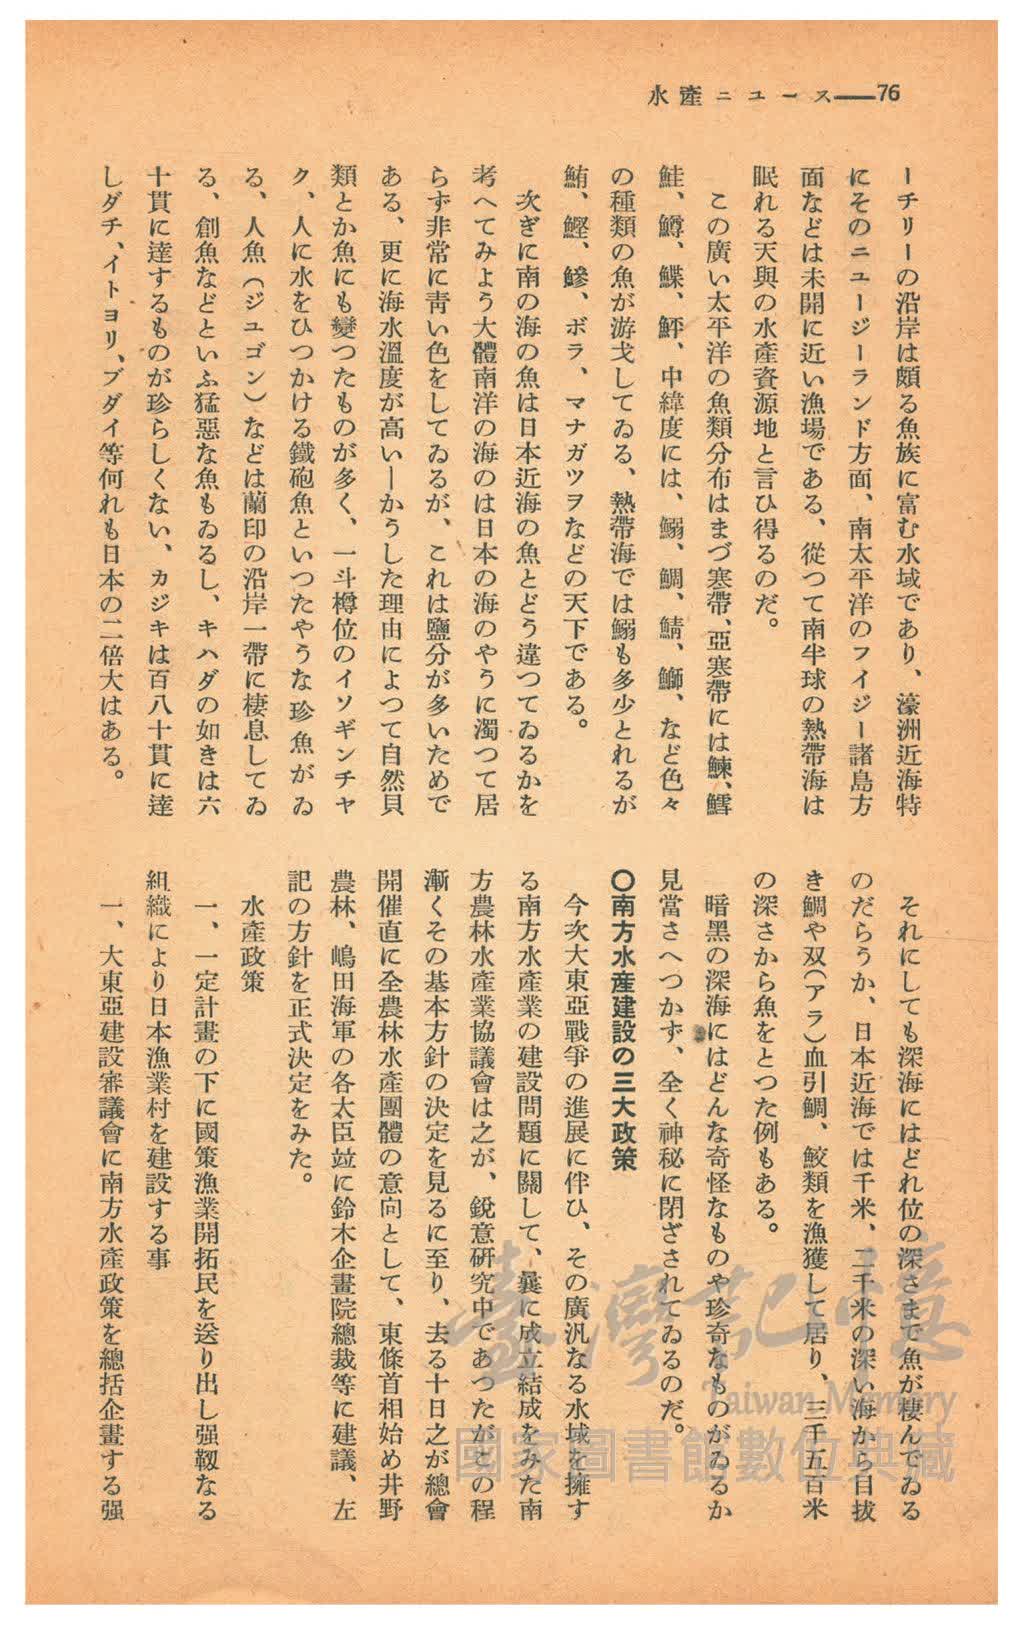 水產ニュース――76
ーチリーの沿岸は頗る魚族に富む水域であり、濠洲近海特
にそのニュージーランド方面、南太平洋のフイジー諸島方
面などは未開に近い漁場である、從つて南半球の熱帶海は
眠れる天與の水產資源地と言ひ得るのだ。
この廣い太平洋の魚類分布はまづ寒帶、亞寒帶には鰊、鱈
鮭、鱒、鰈、鮃、中緯度には、鰯、鯛、鯖、鰤、など色々
の種類の魚が游弋してゐる、熱帶海では鰯も多少とれるが
鮪、鰹、鰺、ボラ、マナガツヲなどの天下である。
次ぎに南の海の魚は日本近海の魚とどう違つてゐるかを
考へてみよう大體南洋の海のは日本の海のやうに濁つて居
らず非常に靑い色をしてゐるが、これは鹽分が多いためで
ある、更に海水溫度が高い―かうした理由によつて自然貝
類とか魚にも變つたものが多く、一斗樽位のイソギンチャ
ク、人に水をひつかける鐵砲魚といつたやうな珍魚がゐ
る、人魚（ジユゴン）などは蘭印の沿岸一帶に棲息してゐ
る、創魚などといふ猛惡な魚もゐるし、キハダの如きは六
十貫に達するものが珍らしくない、カジキは百八十貫に達
しダチ、イトヨリ、ブダイ等何れも日本の二倍大はある。
それにしても深海にはどれ位の深さまで魚が棲んでゐる
のだらうか、日本近海では千米、二千米の深い海から目拔
き鯛や双（アラ）血引鯛、鮫類を漁獲して居り、三千五百米
の深さから魚をとつた例もある。
暗黑の深海にはどんな奇怪なものや珍奇なものがゐるか
見當さへつかず、全く神秘に閉ざされてゐるのだ。
〇南方水産建設の三大政策
今次大東亞戰爭の進展に伴ひ、その廣汎なる水域を擁す
る南方水產業の建設問題に關して、曩に成立結成をみた南
方農林水產業協議會は之が、銳意硏究中であつたがこの程
漸くその基本方針の決定を見るに至り、去る十日之が總會
開催直に全農林水產團體の意向として、東條首相始め井野
農林、嶋田海軍の各太臣竝に鈴木企畫院總裁等に建議、左
記の方針を正式決定をみた。
水產政策
一、一定計畫の下に國策漁業開拓民を送り出し强靱なる
組織により日本漁業村を建設する事
一、大東亞建設審議會に南方水產政策を總括企畫する强
臺灣記憶
Taiwan Memory
國家圖書館數位典藏